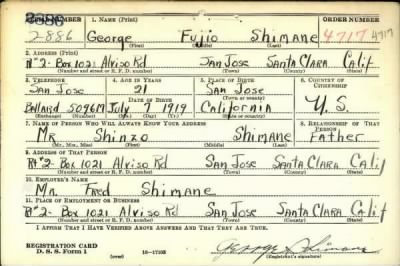 SERIAL NUMBER 1. NAME (Print) ORDER NUMBER
2886 George Fujio Shimane 4717 4717
(First) (Middle) (Last)
2. ADDRESS (Print)
Rt#2- Box 1021 Alviso Rd San Jose Santa Clara Calif
(Number and street or R. F. D. number) (Town) (County) (State)
3. TELEPHONE 4. AGE IN YEARS 5. PLACE OF BIRTH 6. COUNTRY OF CITIZENSHIP
San Jose 21 San Jose
DATE OF BIRTH (Town or county)
Ballard 5096M July 7 1919 California U.S.
(Exchange) (Number) (Mo.) (Day) (Yr.) (State or country)
7. NAME OF PERSON WHO WILL ALWAYS KNOW YOUR ADDRESS 8. RELATIONSHIP OF THAT PERSON
Mr Shinzo Shimane Father
(Mr., Mrs., Miss) (First) (Middle) (Last)
9. ADDRESS OF THAT PERSON
Rt#2- Box 1021 Alviso Rd San Jose Santa Clara Calif
(Number and street or R. F. D. number) (Town) (County) (State)
10. EMPLOYER'S NAME
Mr. Fred Shimane
11. PLACE OF EMPLOYMENT OR BUSINESS
Rt#2- Box 1021 Alviso Rd San Jose Santa Clara Calif
(Number and street or R. F. D. number) (Town) (County) (State)
I AFFIRM THAT I HAVE VERIFIED ABOVE ANSWERS AND THAT THEY ARE TRUE.
REGISTRATION CARD
D. S. S. Form 1 (over) 16-17105 George Shimane
(Registrant's signature)